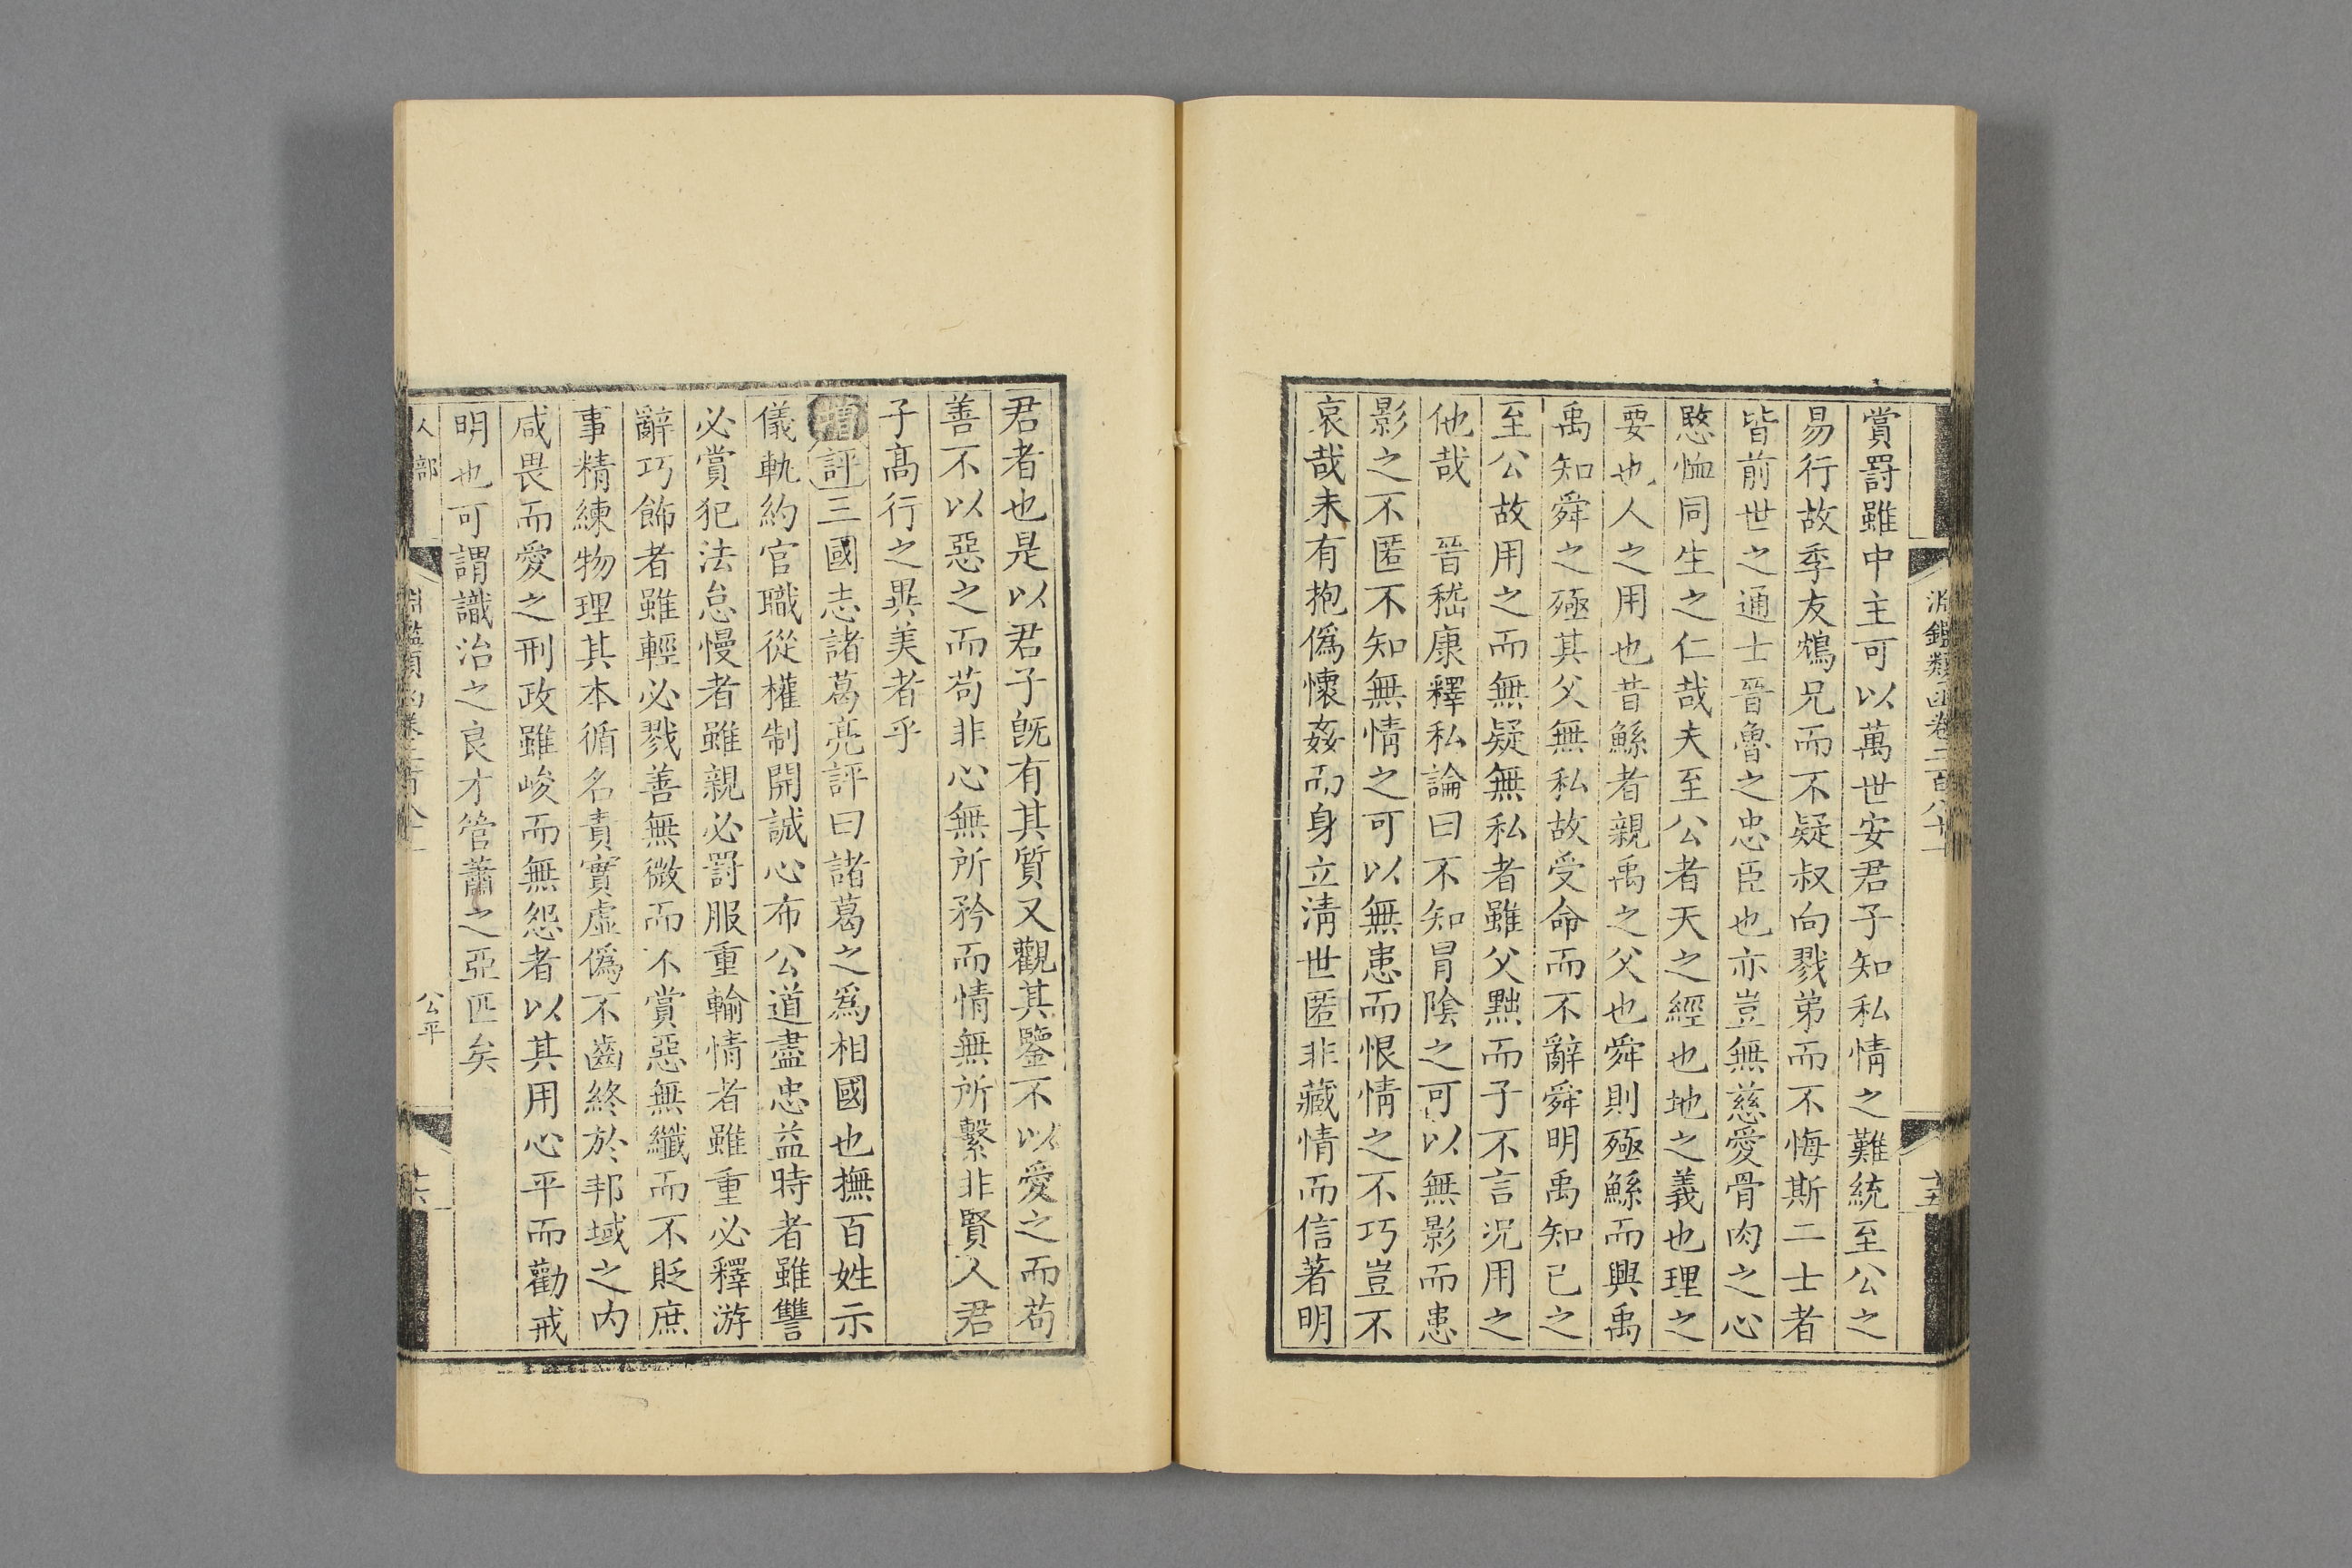 淵鑑類函卷二百八十一
十五
賞罰雖中主可以萬世安君子知私情之難統至公之
易行故季友鴆兄而不疑叔向戮弟而不悔斯二士者
皆前世之通士晉魯之忠臣也亦豈無慈愛骨肉之心
愍恤同生之仁哉夫至公者天之經也地之義也理之
要也人之用也昔鯀者親禹之父也舜則殛鯀而興禹
禹知舜之殛其父無私故受命而不辭舜明禹知已之
至公故用之而無疑無私者雖父黜而子不言況用之
他哉　晉嵇康釋私論曰不知冐陰之可以無影而患
影之不匿不知無情之可以無患而恨情之不巧豈不
哀哉未有抱僞懷姦而身立淸世匿非藏情而信著明
君者也是以君子旣有其質又觀其鑒不以愛之而苟
善不以惡之而苟非心無所矜而情無所繫非賢人君
子高行之異美者乎
增評三國志諸葛亮評曰諸葛之爲相國也撫百姓示
儀軌約官職從權制開誠心布公道盡忠益時者雖讐
必賞犯法怠慢者雖親必罸服重輸情者雖重必釋游
辭巧飾者雖輕必戮善無微而不賞惡無纖而不貶庶
事精練物理其本循名責實虛僞不齒終於邦域之内
咸畏而愛之刑政雖峻而無怨者以其用心平而勸戒
明也可謂識治之良才管蕭之亞匹矣
人部
公平
十六